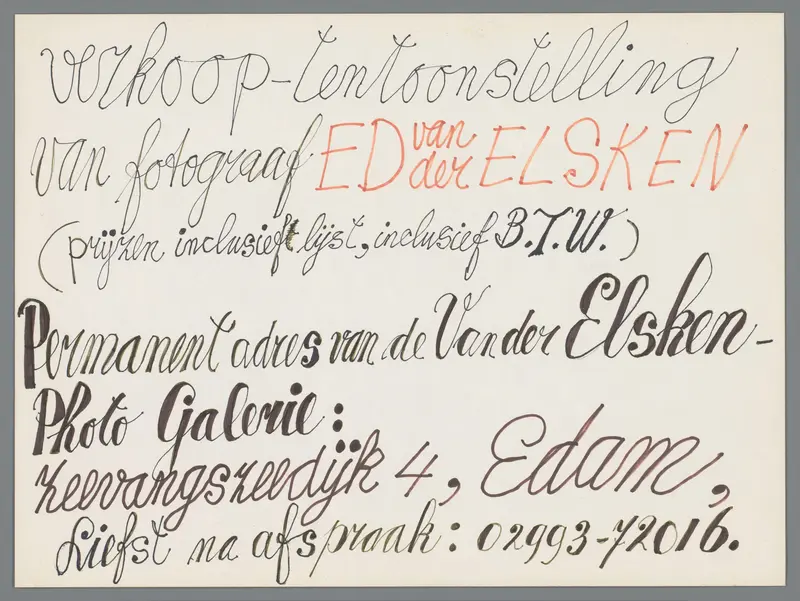 verkoop-tentoonstelling
van fotograaf ED van der ELSKEN
(prijzen inclusief lijst, inclusief B.T.W.)
Permanent adres van de Van der Elsken-
Photo Galerie:
Zeevangszeedijk 4, Edam,
Liefst na afspraak: 02993-72016.